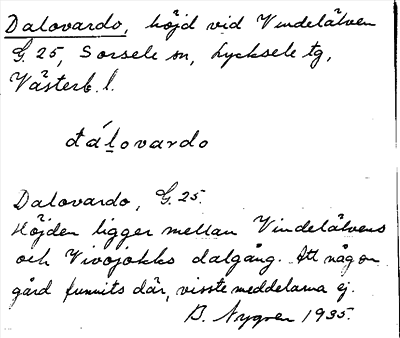 Dalovardo, höjd vid Vindelälven
G. 25, Sorsele sn, Lycksele tg,
Västerb. l.
đálovardo
Dalovardo, G. 25.
Höjden ligger mellan Vindelälvens
och Vivojokks dalgång. Att någon
gård funnits där, visste meddelarna ej.
B. Nygren 1935.